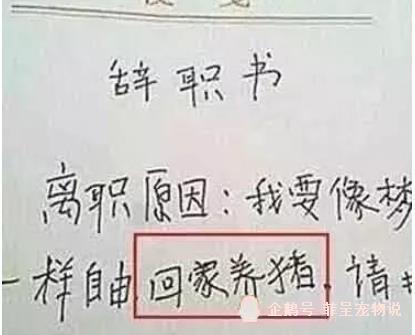 辞职书
离职原因:我要像梦
一样自由,回家养猪,请
企鹅号 菲呈宠物说